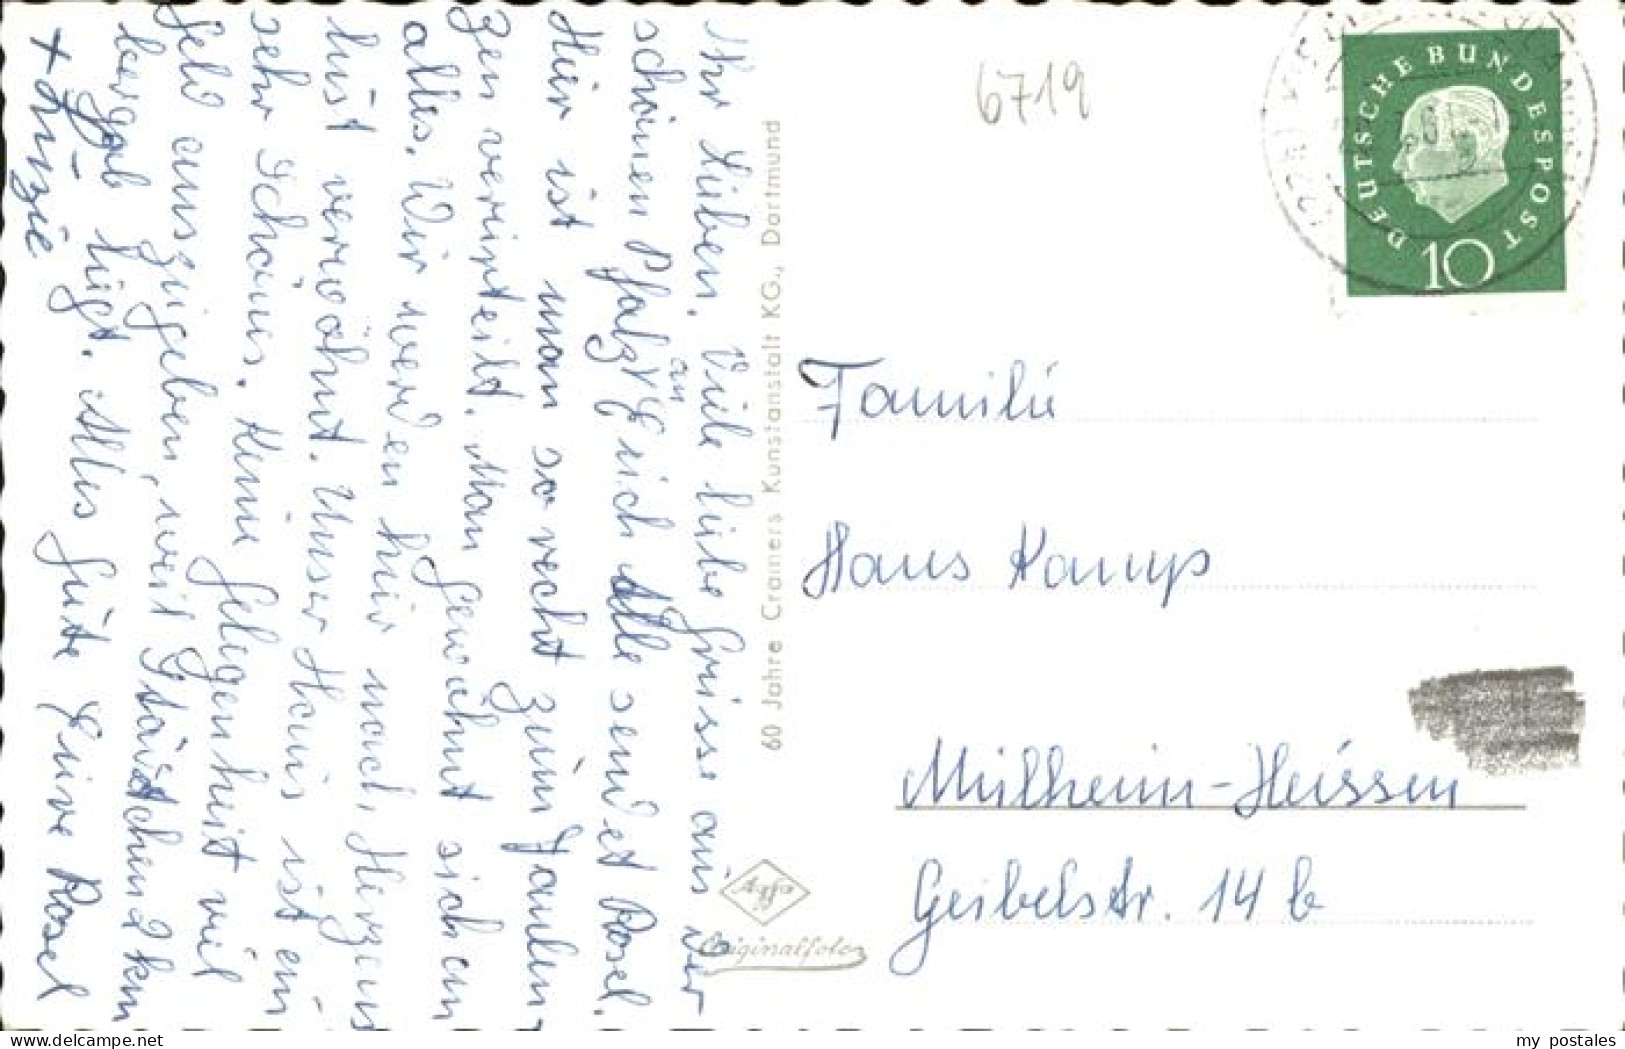 Ihr Lieben. Viele liebe Grüsse aus der
schönen Pfalz an Euch Alle sendet Rosel.
Hier ist man so recht zum Faulen-
zen verurteilt. Man gewöhnt sich an
alles. Wir werden hier nach Herzens
lust verwöhnt. Unser Haus ist ein
sehr Schönes. Keine Gelegenheit viel
Geld auszugeben, weil Städtchen 2 km
bergab liegt. Alles Gute Eure Rosel
+ Luzie
60 Jahre Cramers Kunstanstalt KG., Dortmund
Agfa
Originalfoto
6719
DEUTSCHE BUNDESPOST
10
Familie
Hans Kamp
Mülheim-Heissen
Geibelstr. 14 b
my postales